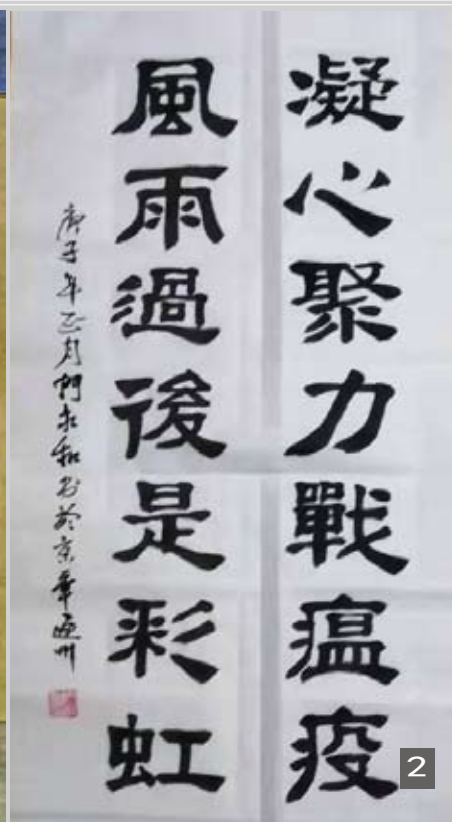 凝心聚力戰瘟疫
風雨過後是彩虹
庚子年正月門永和書於京華通州
2